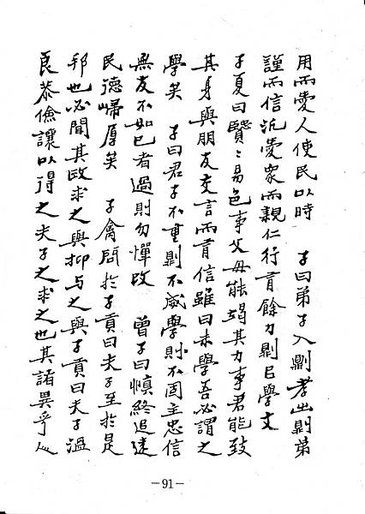 用而愛人使民以時　子曰弟子入則孝出則弟
謹而信汎愛眾而親仁行有餘力則以學文
子夏曰賢〻易色事父母能竭其力事君能致
其身與朋友交言而有信雖曰未學吾必謂之
學矣　子曰君子不重則不威學則不固主忠信
無友不如己者過則勿憚改　曾子曰慎終追遠
民德歸厚矣　子禽問於子貢曰夫子至於是
邦也必聞其政求之與抑与之與子貢曰夫子溫
良恭儉讓以得之夫子之求之也其諸異乎
-91-